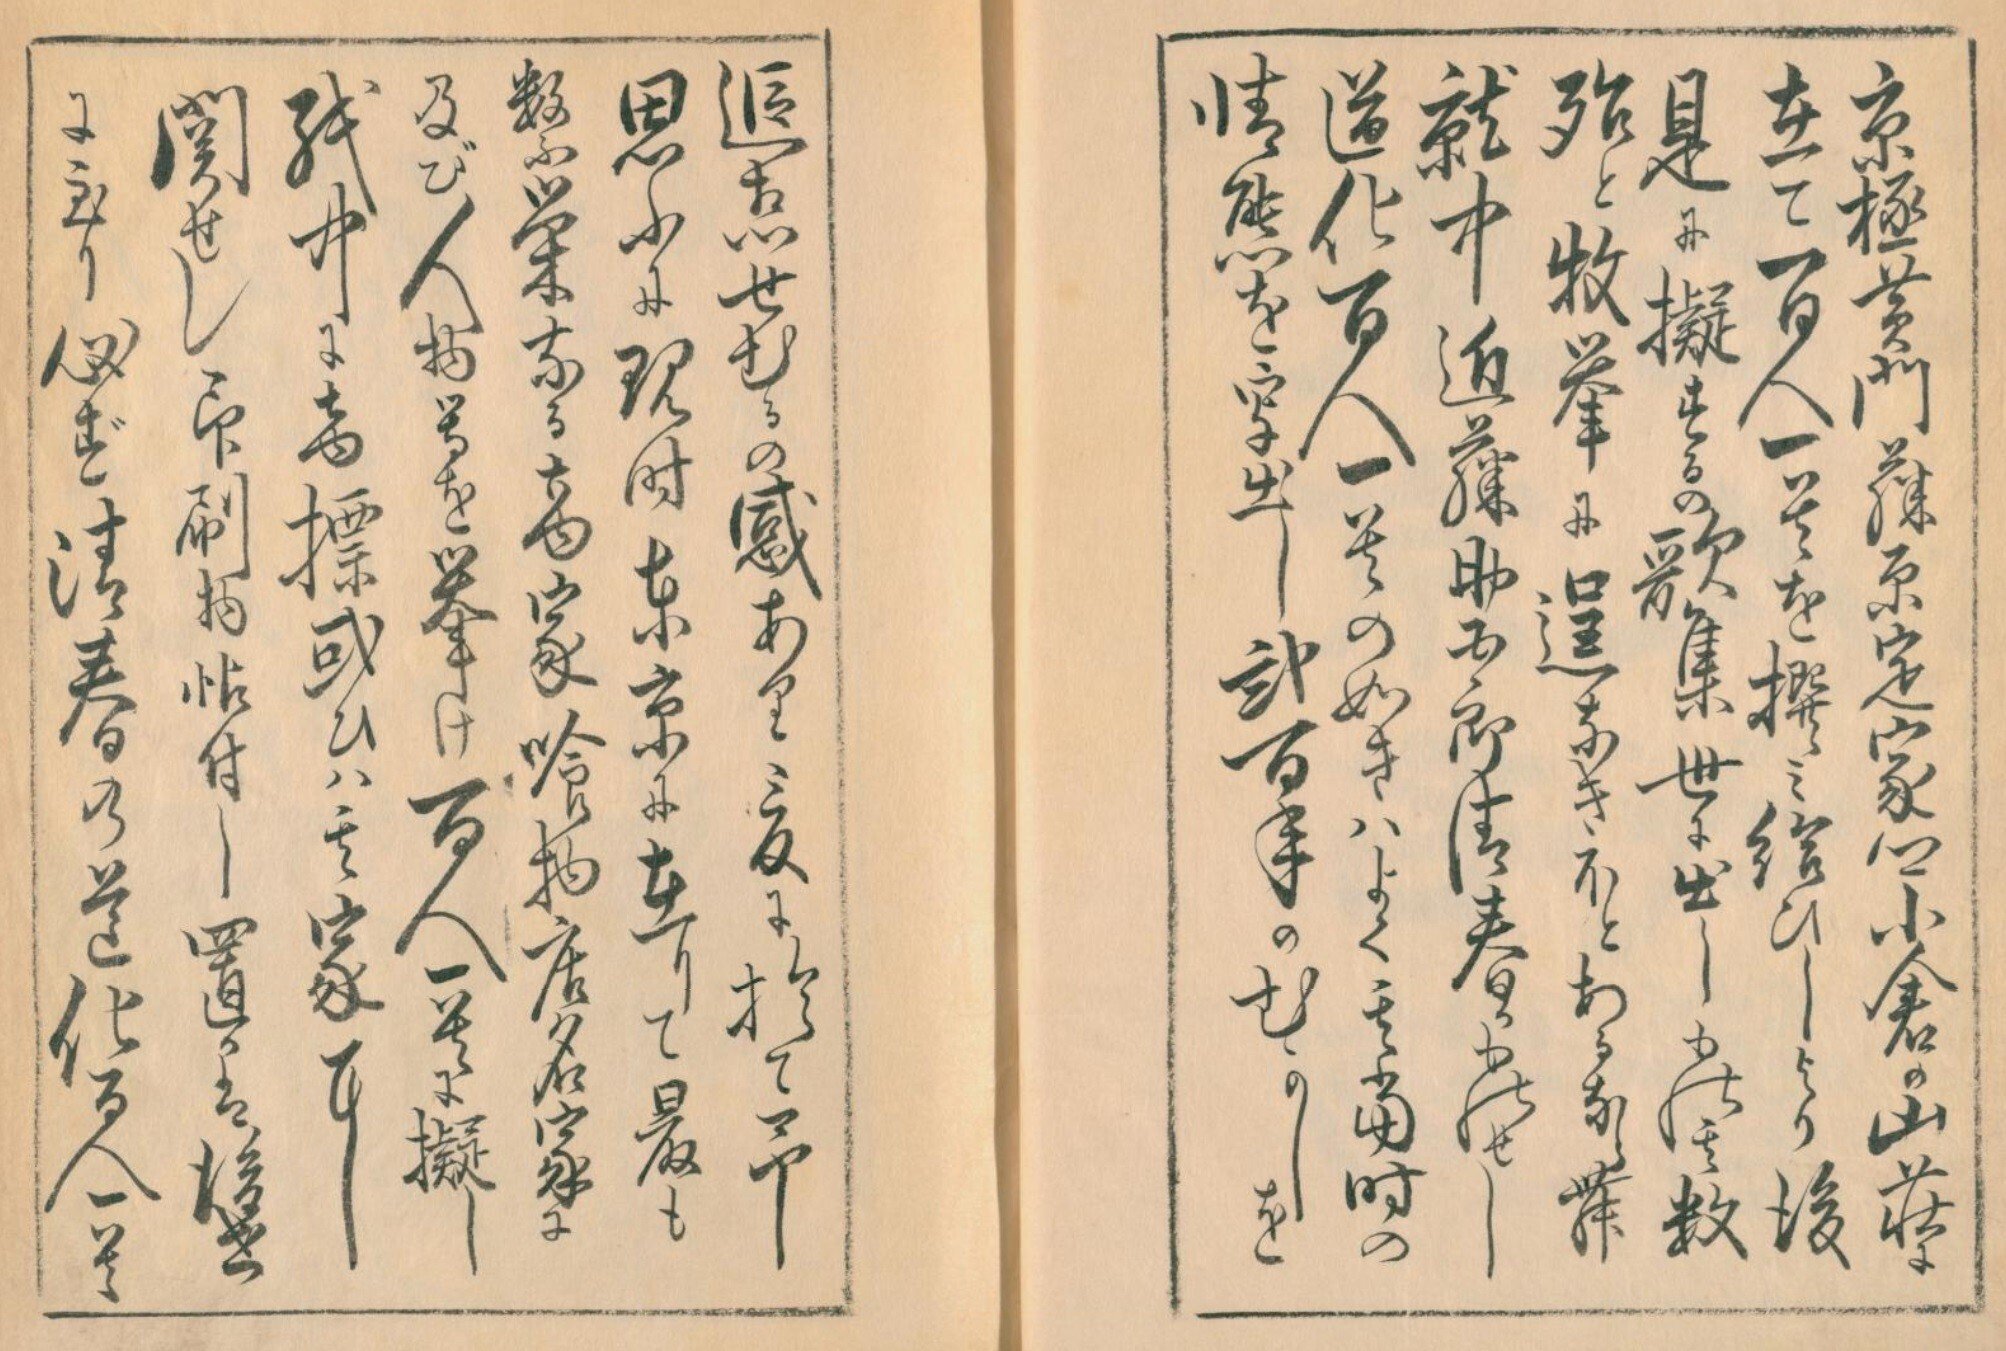 京極黄門藤原定家公小倉の山荘に
在て百人一首を撰ミ給ひしより後
是に擬するの歌集世に出しも其数
殆と牧挙に遑なきほとあるなり
就中近藤助五郎清春かものせし
道化百人一首の如きハよく其当時の
情態を写出し弐百年のむかしを
追想せむるの感あり爰に於て予
思ふに現時東京に在りて最も
数ふ栄なる商家喰物店名家に
及び人物等を挙け百人一首に擬し
紙中に商標或ひハ其家に
関せし印刷物帖付し置
に至り必ず清春の道化百人一首